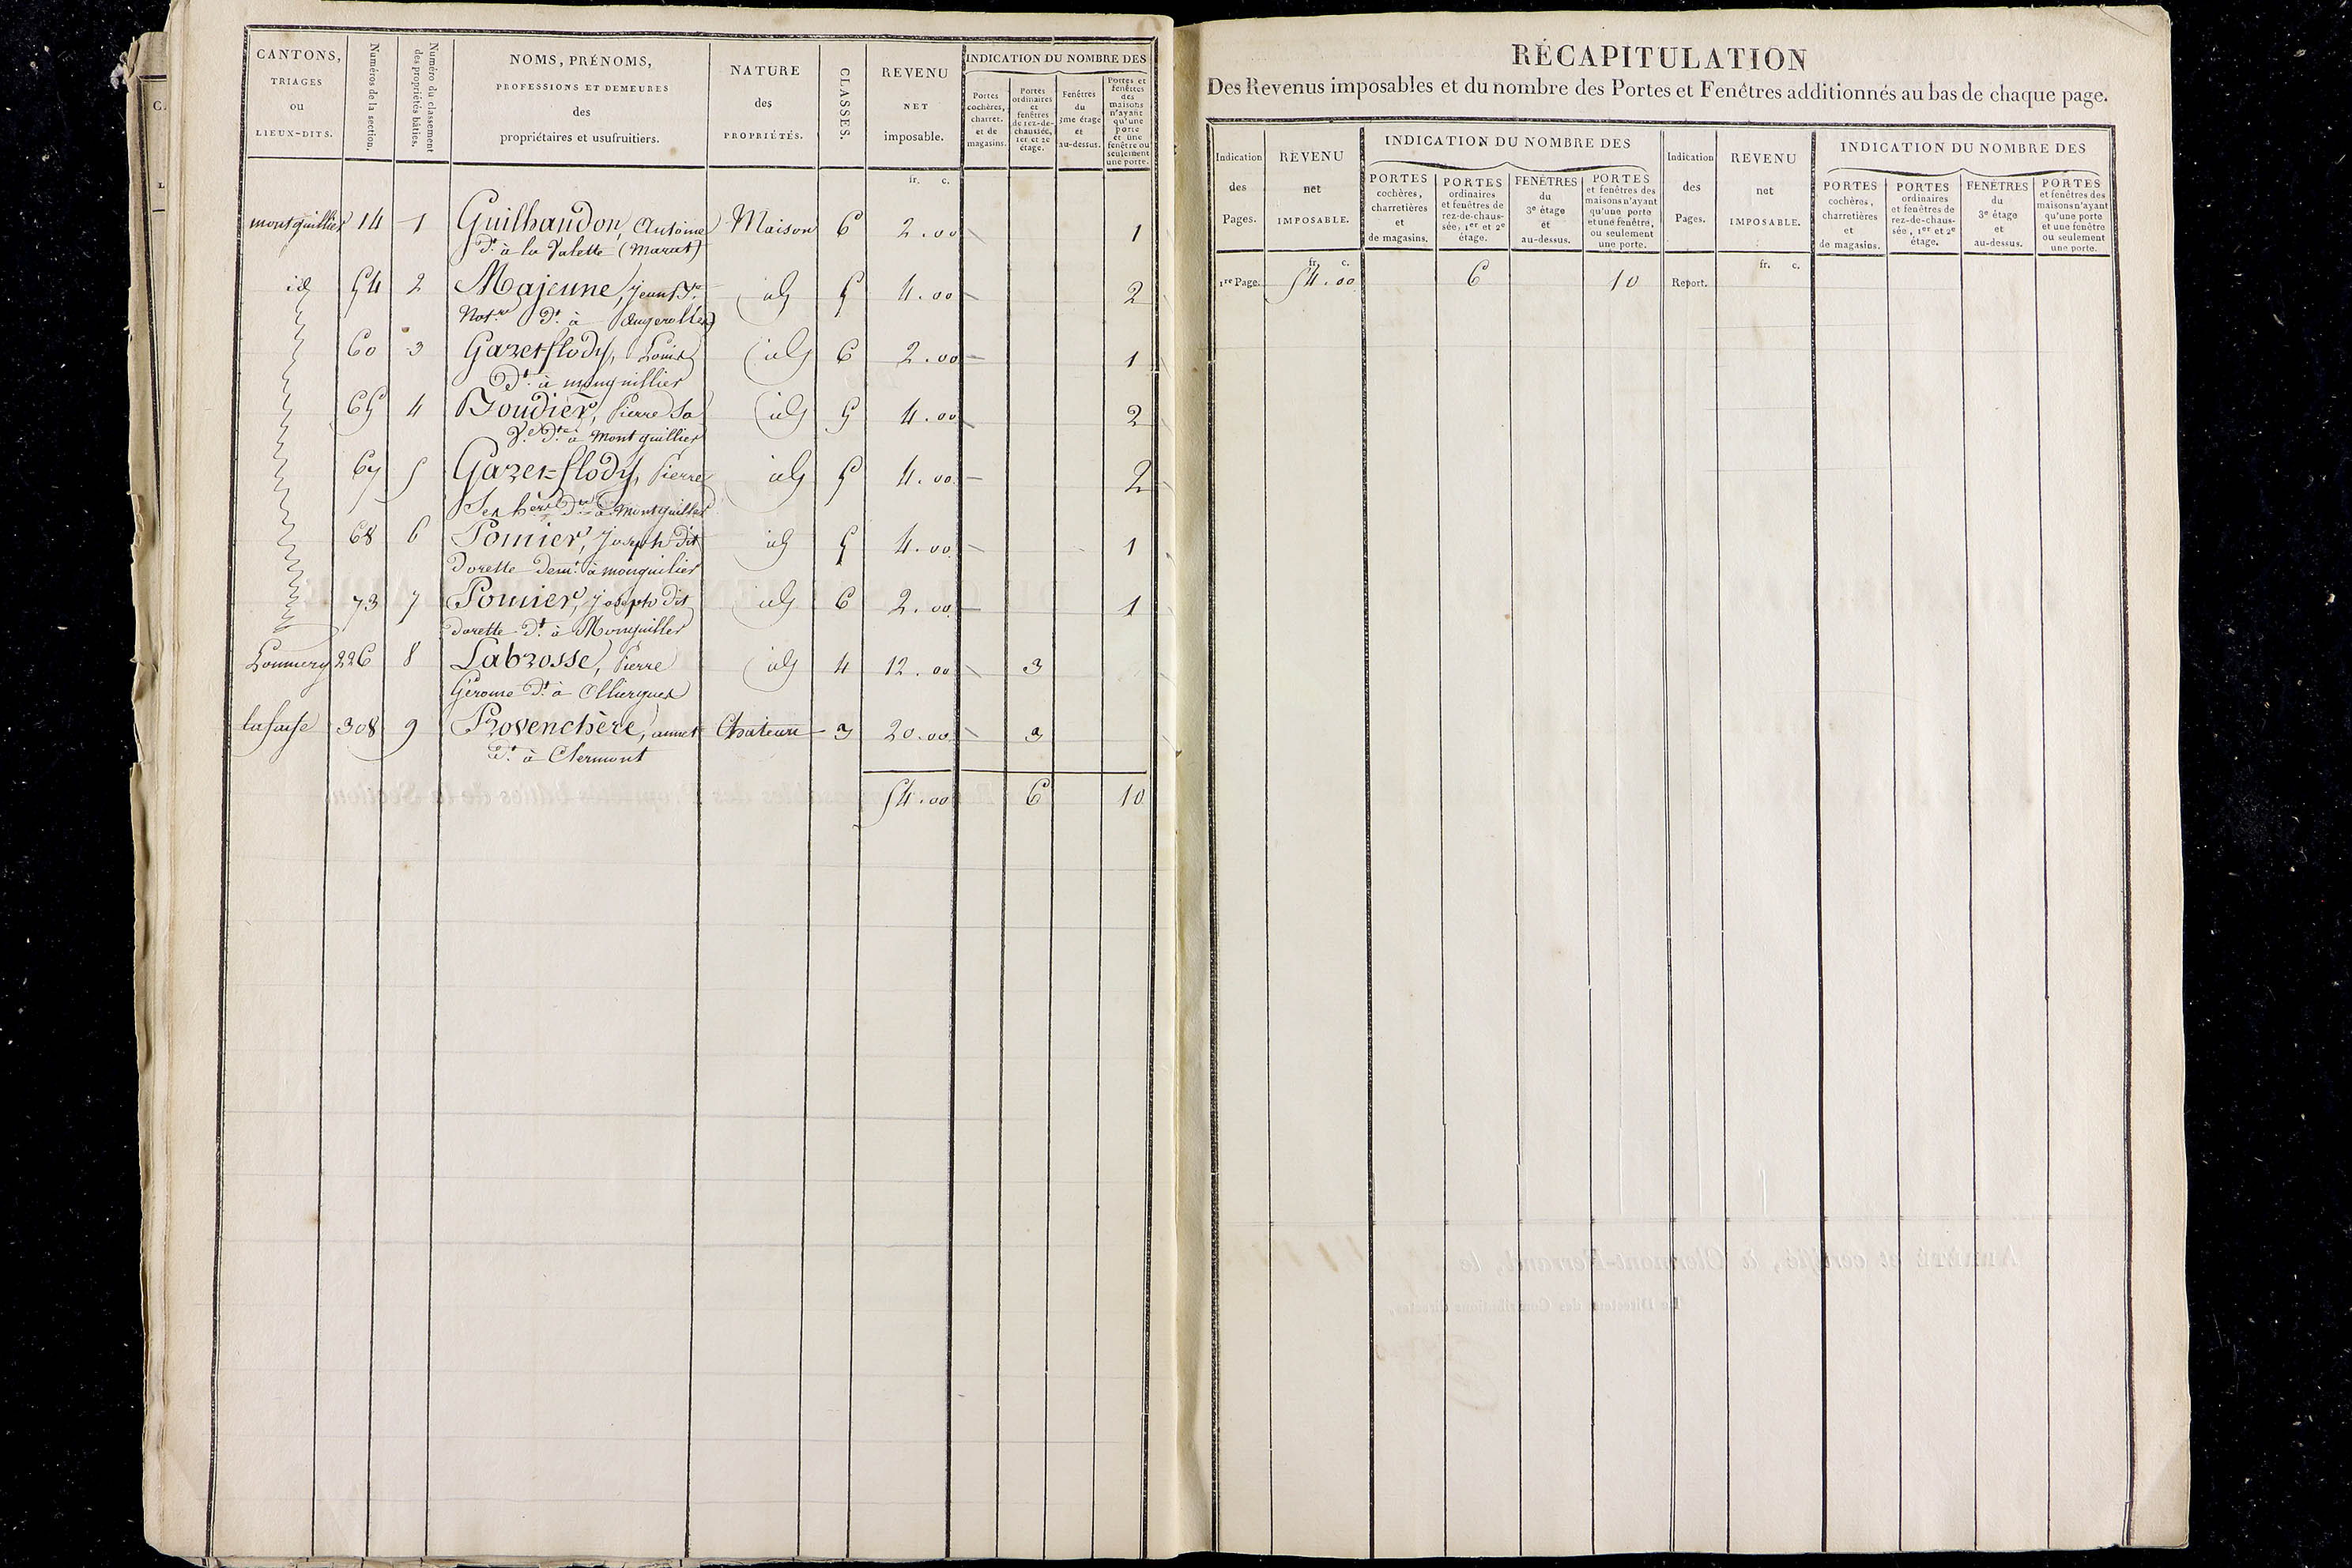 CANTONS, TRIAGES ou LIEUX-DITS.
Numéros de la section.
Numéro du classement des propriétés bâties.
NOMS, PRÉNOMS, PROFESSIONS ET DEMEURES des propriétaires et usufruitiers.
NATURE des PROPRIÉTÉS.
CLASSES.
REVENU NET imposable.
INDICATION DU NOMBRE DES
Portes cochères, charret. et de magasins.
Portes ordinaires et fenêtres de rez-de-chaussée, 1er et 2e étage.
Fenêtres du 3me étage et au-dessus.
Portes et fenêtres des maisons n'ayant qu'une porte et une fenêtre ou seulement une porte.
fr. c.
montguillier 14 1 Guilhaudon, Antoine Maison 6 2.00 1
dt à la Valette (Marat)
id 54 2 Majeune, Jean Bte id 5 4.00 2
Notre dt à Augerolles
60 3 Gazet-flody, Louis id 6 2.00 1
dt à monguillier
65 4 Boudier, Pierre Sa id 5 4.00 2
Ve dte à Montguillier
67 5 Gazet-flody, Pierre id 5 4.00 2
Ses hers à Montguillier
68 6 Pomier, Joseph dit id 5 4.00 1
dorette demt à monguilier
73 7 Pomier, Joseph dit id 6 2.00 1
dorette dt à Monguillier
226 8 Labrosse, Pierre id 4 12.00 3
Gérome dt à Olliergues
308 9 Provenchère, annet Chateau 3 20.00 3
dt à Clermont
54.00 6 10
RÉCAPITULATION
Des Revenus imposables et du nombre des Portes et Fenêtres additionnés au bas de chaque page.
Indication des Pages.
REVENU net IMPOSABLE.
INDICATION DU NOMBRE DES
PORTES cochères, charretières et de magasins.
PORTES ordinaires et fenêtres de rez-de-chaussée, 1er et 2e étage.
FENÊTRES du 3e étage et au-dessus.
PORTES et fenêtres des maisons n'ayant qu'une porte et une fenêtre, ou seulement une porte.
Indication des Pages.
REVENU net IMPOSABLE.
INDICATION DU NOMBRE DES
PORTES cochères, charretières et de magasins.
PORTES ordinaires et fenêtres de rez-de-chaussée, 1er et 2e étage.
FENÊTRES du 3e étage et au-dessus.
PORTES et fenêtres des maisons n'ayant qu'une porte et une fenêtre ou seulement une porte.
fr. c. fr. c.
1re Page. 54.00 6 10 Report.